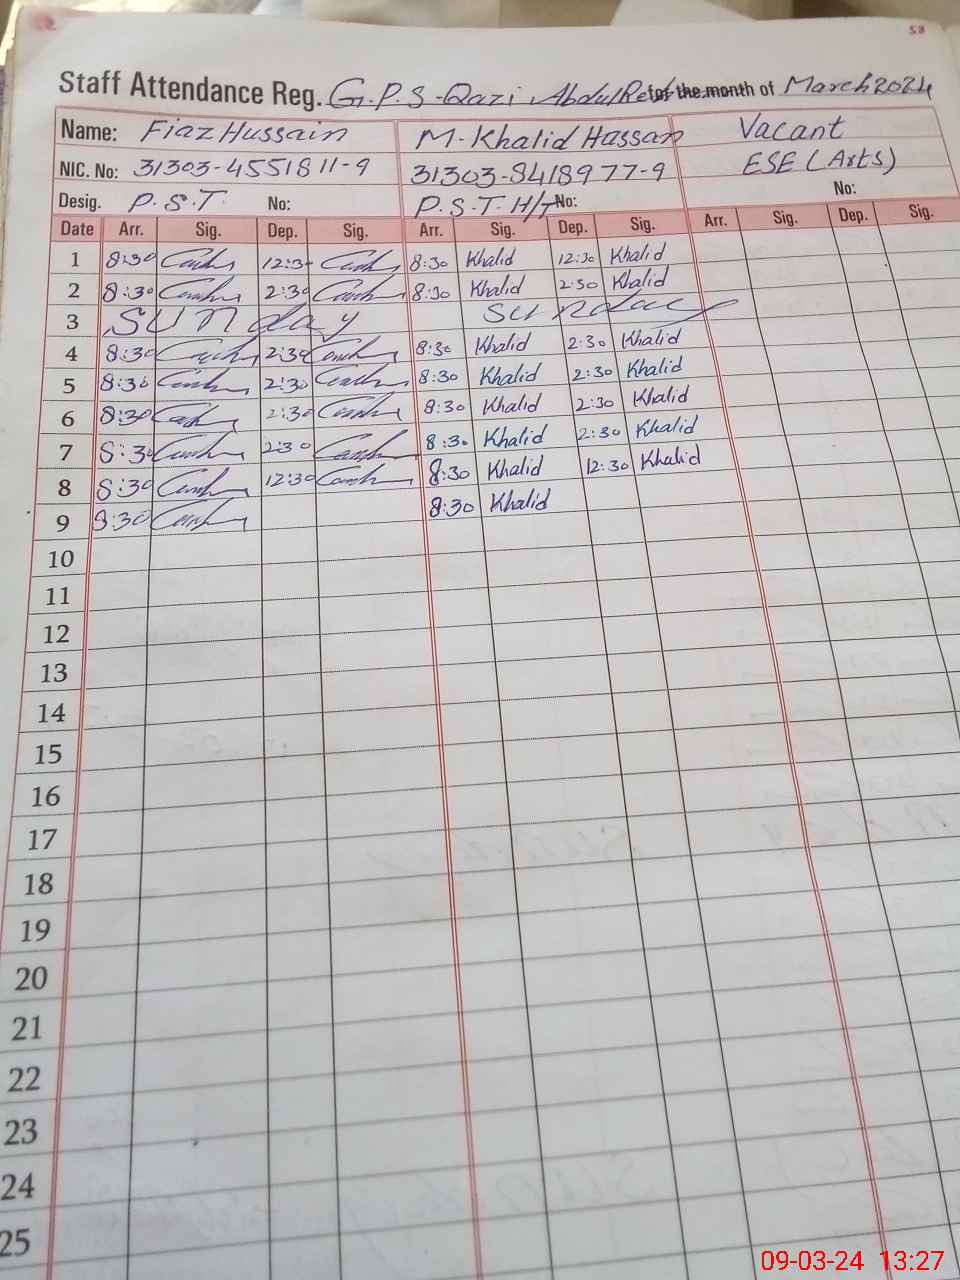 53
Staff Attendance Reg. G.P.S-Qazi Abdul for the month of March 2024
Name: Fiaz Hussain M-Khalid Hassan Vacant
NIC. No: 31303-4551811-9 31303-8418977-9 ESE (Arts)
Desig. P.S.T. No: P.S.T H/T No: No:
Date Arr. Sig. Dep. Sig. Arr. Sig. Dep. Sig. Arr. Sig. Dep. Sig.
1 8:30 12:30 8:30 Khalid 12:30 Khalid
2 8:30 2:30 8:30 Khalid 2:30 Khalid
3 SUNday Sunday
4 8:30 2:30 8:30 Khalid 2:30 Khalid
5 8:30 2:30 8:30 Khalid 2:30 Khalid
6 8:30 2:30 8:30 Khalid 2:30 Khalid
7 8:30 2:30 8:30 Khalid 2:30 Khalid
8 8:30 12:30 8:30 Khalid 12:30 Khalid
9 8:30 8:30 Khalid
10
11
12
13
14
15
16
17
18
19
20
21
22
23
24
25
09-03-24 13:27